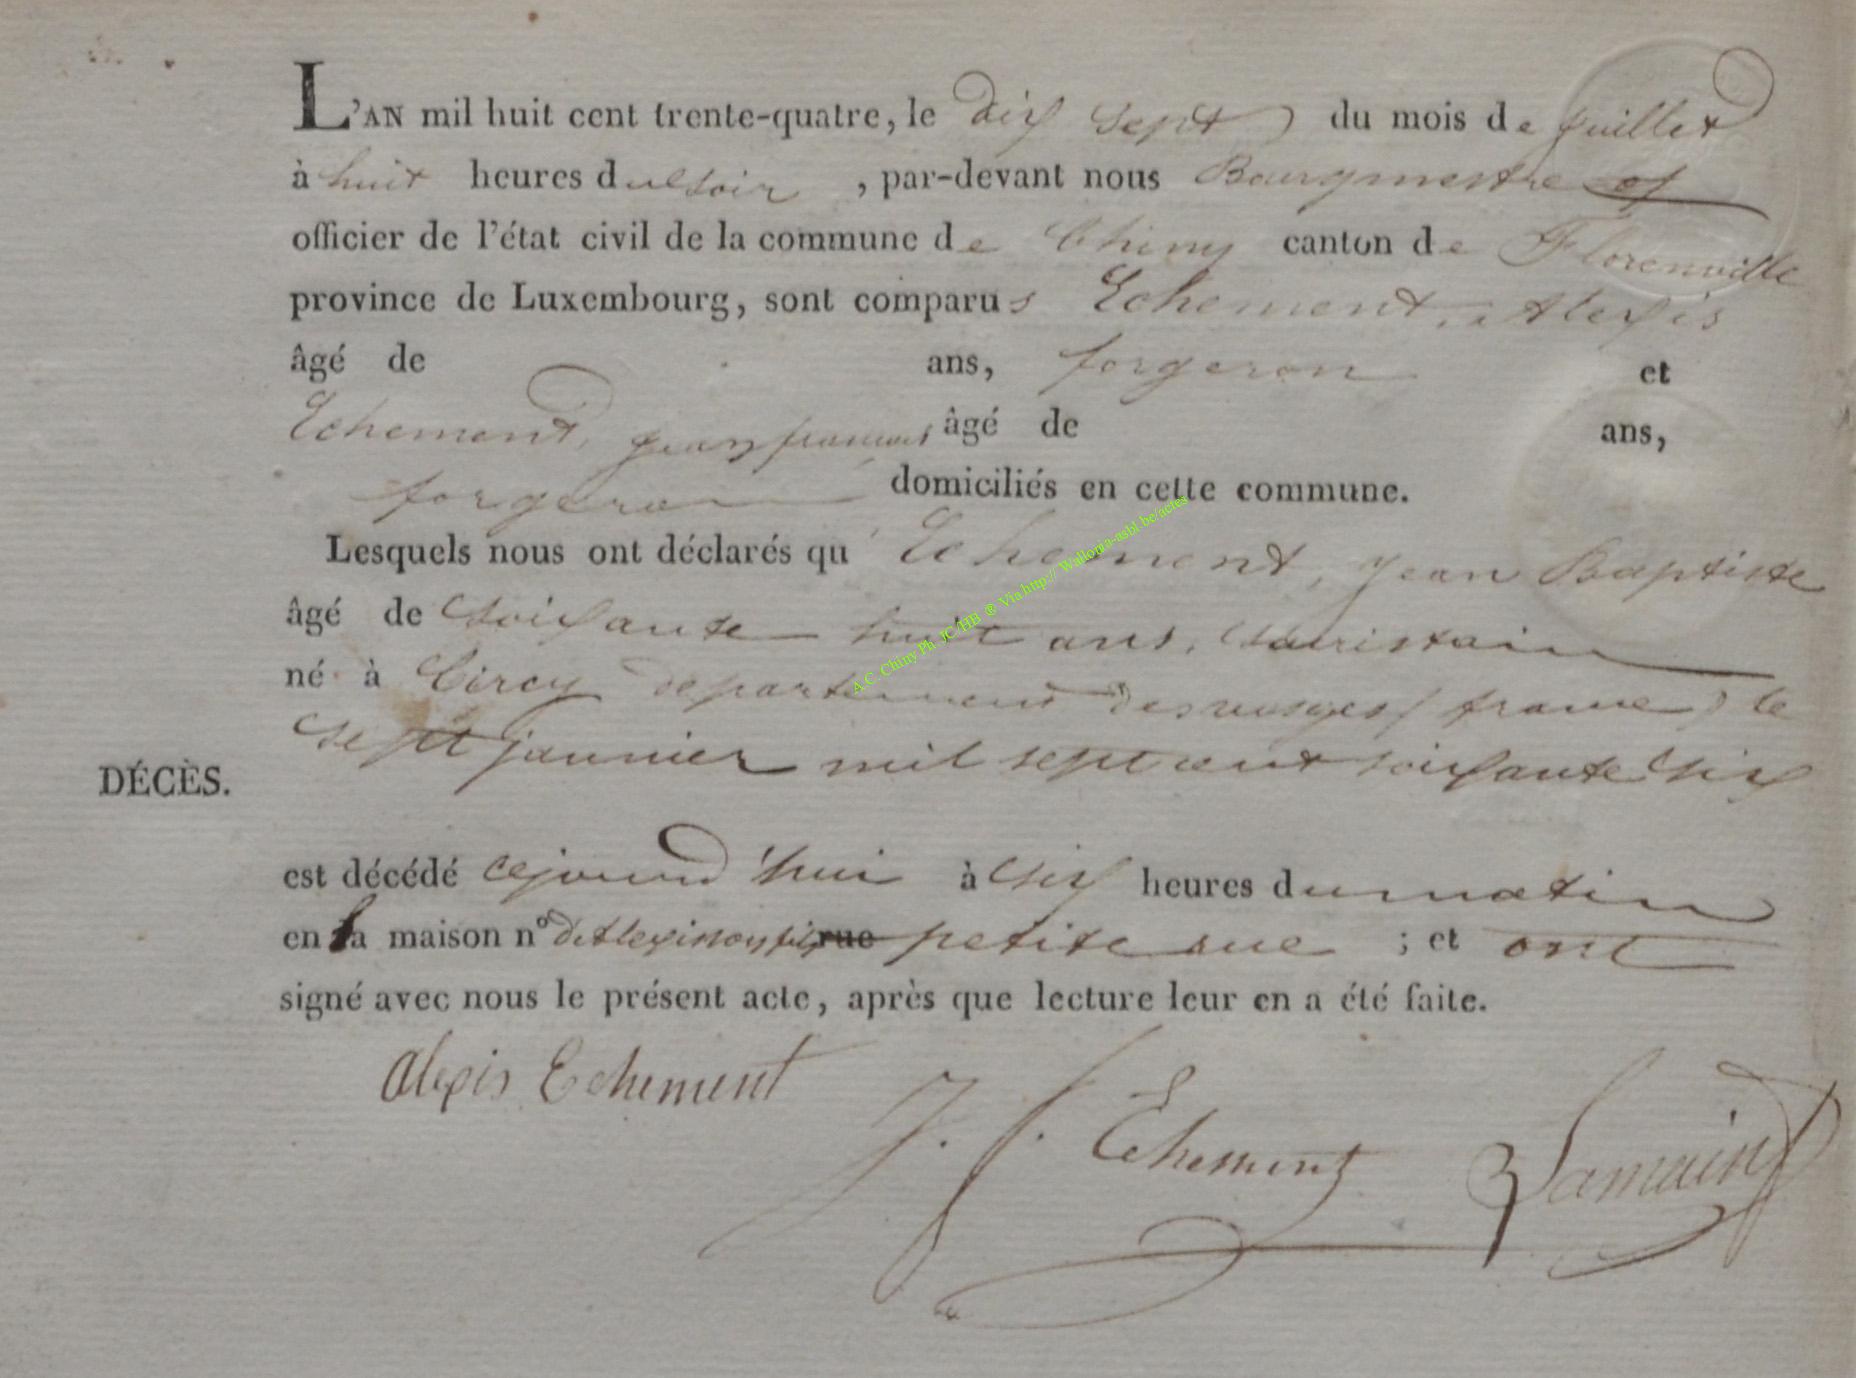 L'AN mil huit cent trente-quatre, le dix sept du mois de juillet
à huit heures du soir, par-devant nous Bourgmestre et
officier de l'état civil de la commune de Chiny canton de Florenville
province de Luxembourg, sont comparus Echement, Alexis
âgé de ans, forgeron et
Echement, jean françois âgé de ans,
forgeron domiciliés en cette commune.
Lesquels nous ont déclarés qu' Echement, jean Baptiste
âgé de Soixante huit ans,
né à Circy département des vosges (france) le
sept janvier mil sept cent soixante Six
DÉCÈS.
est décédé cejourd'hui à Six heures du matin
en la maison n° d'Alexis son fils rue petite rue ; et ont
signé avec nous le présent acte, après que lecture leur en a été faite.
Alexis Echement
J. f. Echement
A.C. Chiny Ph. JC/HB ® Via http:// Wallonia-asbl.be/actes